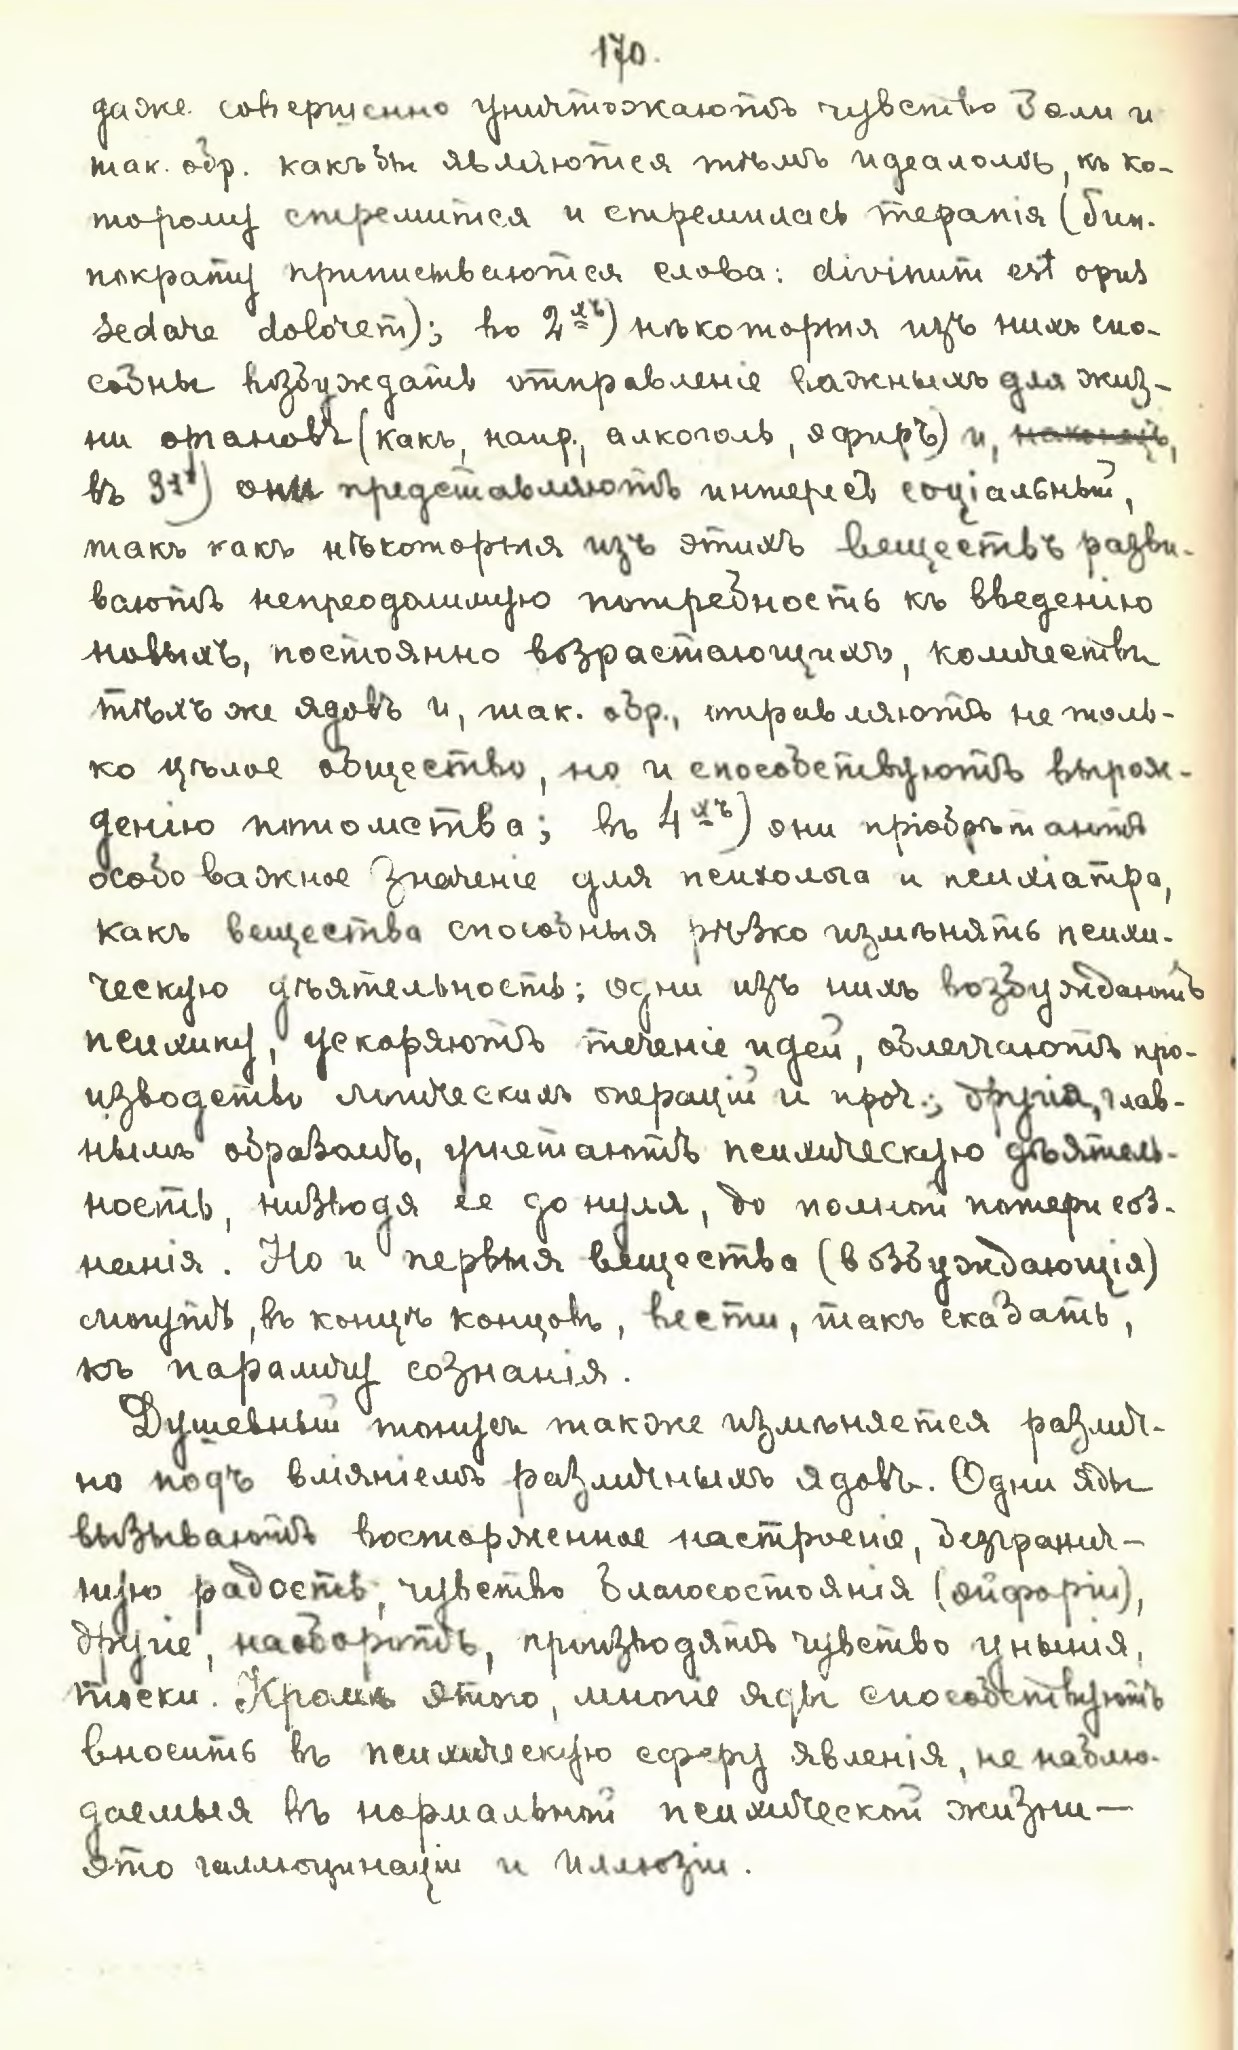 170.
даже совершенно уничтожаютъ чувство боли и
так. обр. какъ бы являются тѣмъ идеаломъ, къ ко-
торому стремится и стремилась терапія (Гип-
пократу приписываются слова: divinum est opus
sedare dolorem); во 2хъ) нѣкоторыя изъ нихъ спо-
собны возбуждать отправленіе важныхъ для жиз-
ни органовъ (какъ, напр., алкоголь, эфиръ) и, наконецъ,
въ 3хъ) они представляютъ интересъ соціальный,
такъ какъ нѣкоторыя изъ этихъ веществъ разви-
ваютъ непреодолимую потребность къ введенію
новыхъ, постоянно возрастающихъ, количествъ
тѣхъ же ядовъ и, так. обр., отравляютъ не толь-
ко цѣлое общество, но и способствуютъ вырож-
денію потомства; въ 4хъ) они пріобрѣтаютъ
особо важное значеніе для психолога и психіатра,
какъ вещества способныя рѣзко измѣнять психи-
ческую дѣятельность; одни изъ нихъ возбуждаютъ
психику, ускоряютъ теченіе идей, облегчаютъ про-
изводство логическихъ операцій и проч.; другія, глав-
нымъ образомъ, угнетаютъ психическую дѣятель-
ность, низводя ее до нуля, до полной потери соз-
нанія. Но и первыя вещества (возбуждающія)
могутъ, въ концѣ концовъ, вести, такъ сказать,
къ параличу сознанія.
Душевный тонусъ также измѣняется различ-
но подъ вліяніемъ различныхъ ядовъ. Одни яды
вызываютъ восторженное настроеніе, безгранич-
ную радость, чувство благосостоянія (эйфорія),
другіе, наоборотъ, производятъ чувство унынія,
тоски. Кромѣ этого, многіе яды способствуютъ
вносить въ психическую сферу явленія, не наблю-
даемыя въ нормальной психической жизни —
это галлюцинаціи и иллюзіи.